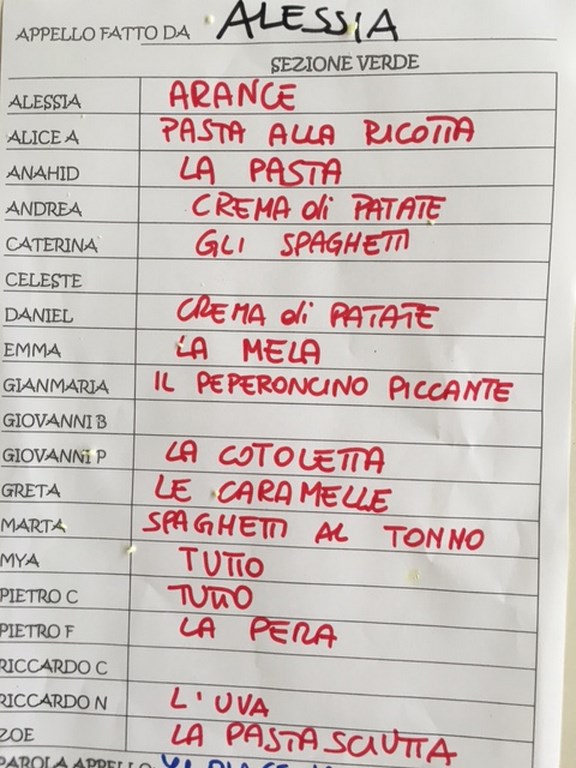 APPELLO FATTO DA ALESSIA
SEZIONE VERDE
ALESSIA ARANCE
ALICE A PASTA ALLA RICOTTA
ANAHID LA PASTA
ANDREA CREMA di PATATE
CATERINA GLI SPAGHETTI
CELESTE
DANIEL CREMA di PATATE
EMMA LA MELA
GIANMARIA IL PEPERONCINO PICCANTE
GIOVANNI B
GIOVANNI P LA COTOLETTA
GRETA LE CARAMELLE
MARTA SPAGHETTI AL TONNO
MYA TUTTO
PIETRO C TUTTO
PIETRO F LA PERA
RICCARDO C
RICCARDO N L'UVA
ZOE LA PASTASCIUTTA
PAROLA APPELLO: